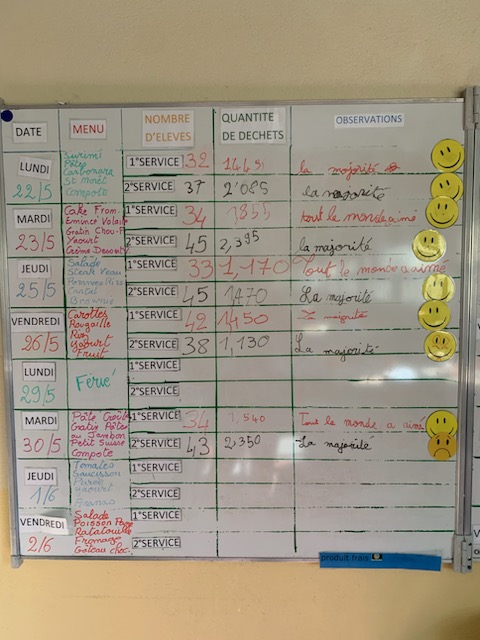 DATE MENU NOMBRE D'ELEVES QUANTITE DE DECHETS OBSERVATIONS
LUNDI 22/5
Surimi
Pâtes
Carbonara
St Moret
Compote
1°SERVICE 32 la majorité
2°SERVICE 37 2'085 la majorité
MARDI 23/5
Cake From.
Emincé Volaille
Gratin Chou-F
Yaourt
Crème Dessert
1°SERVICE 34 1855 tout le monde aimé
2°SERVICE 45 2,395 la majorité
JEUDI 25/5
Salade
Steak Veau
Cantal
Brownie
1°SERVICE 33 1,170 Tout le monde a aimé
2°SERVICE 45 1470 La majorité
VENDREDI 26/5
Carottes
Rougaille
Riz
Yaourt
Fruit
1°SERVICE 42 1450
2°SERVICE 38 1,130 La majorité
LUNDI 29/5
Férié
1°SERVICE
2°SERVICE
MARDI 30/5
Gratin Pâtes
au Jambon
Petit Suisse
Compote
1°SERVICE 34 1,540 Tout le monde a aimé
2°SERVICE 43 2,350 La majorité
JEUDI 1/6
Tomates
Saucisson
Purée
1°SERVICE
2°SERVICE
VENDREDI 2/6
Salade
Poisson Pané
Ratatouille
Fromage
Gâteau choc.
1°SERVICE
2°SERVICE
produit frais